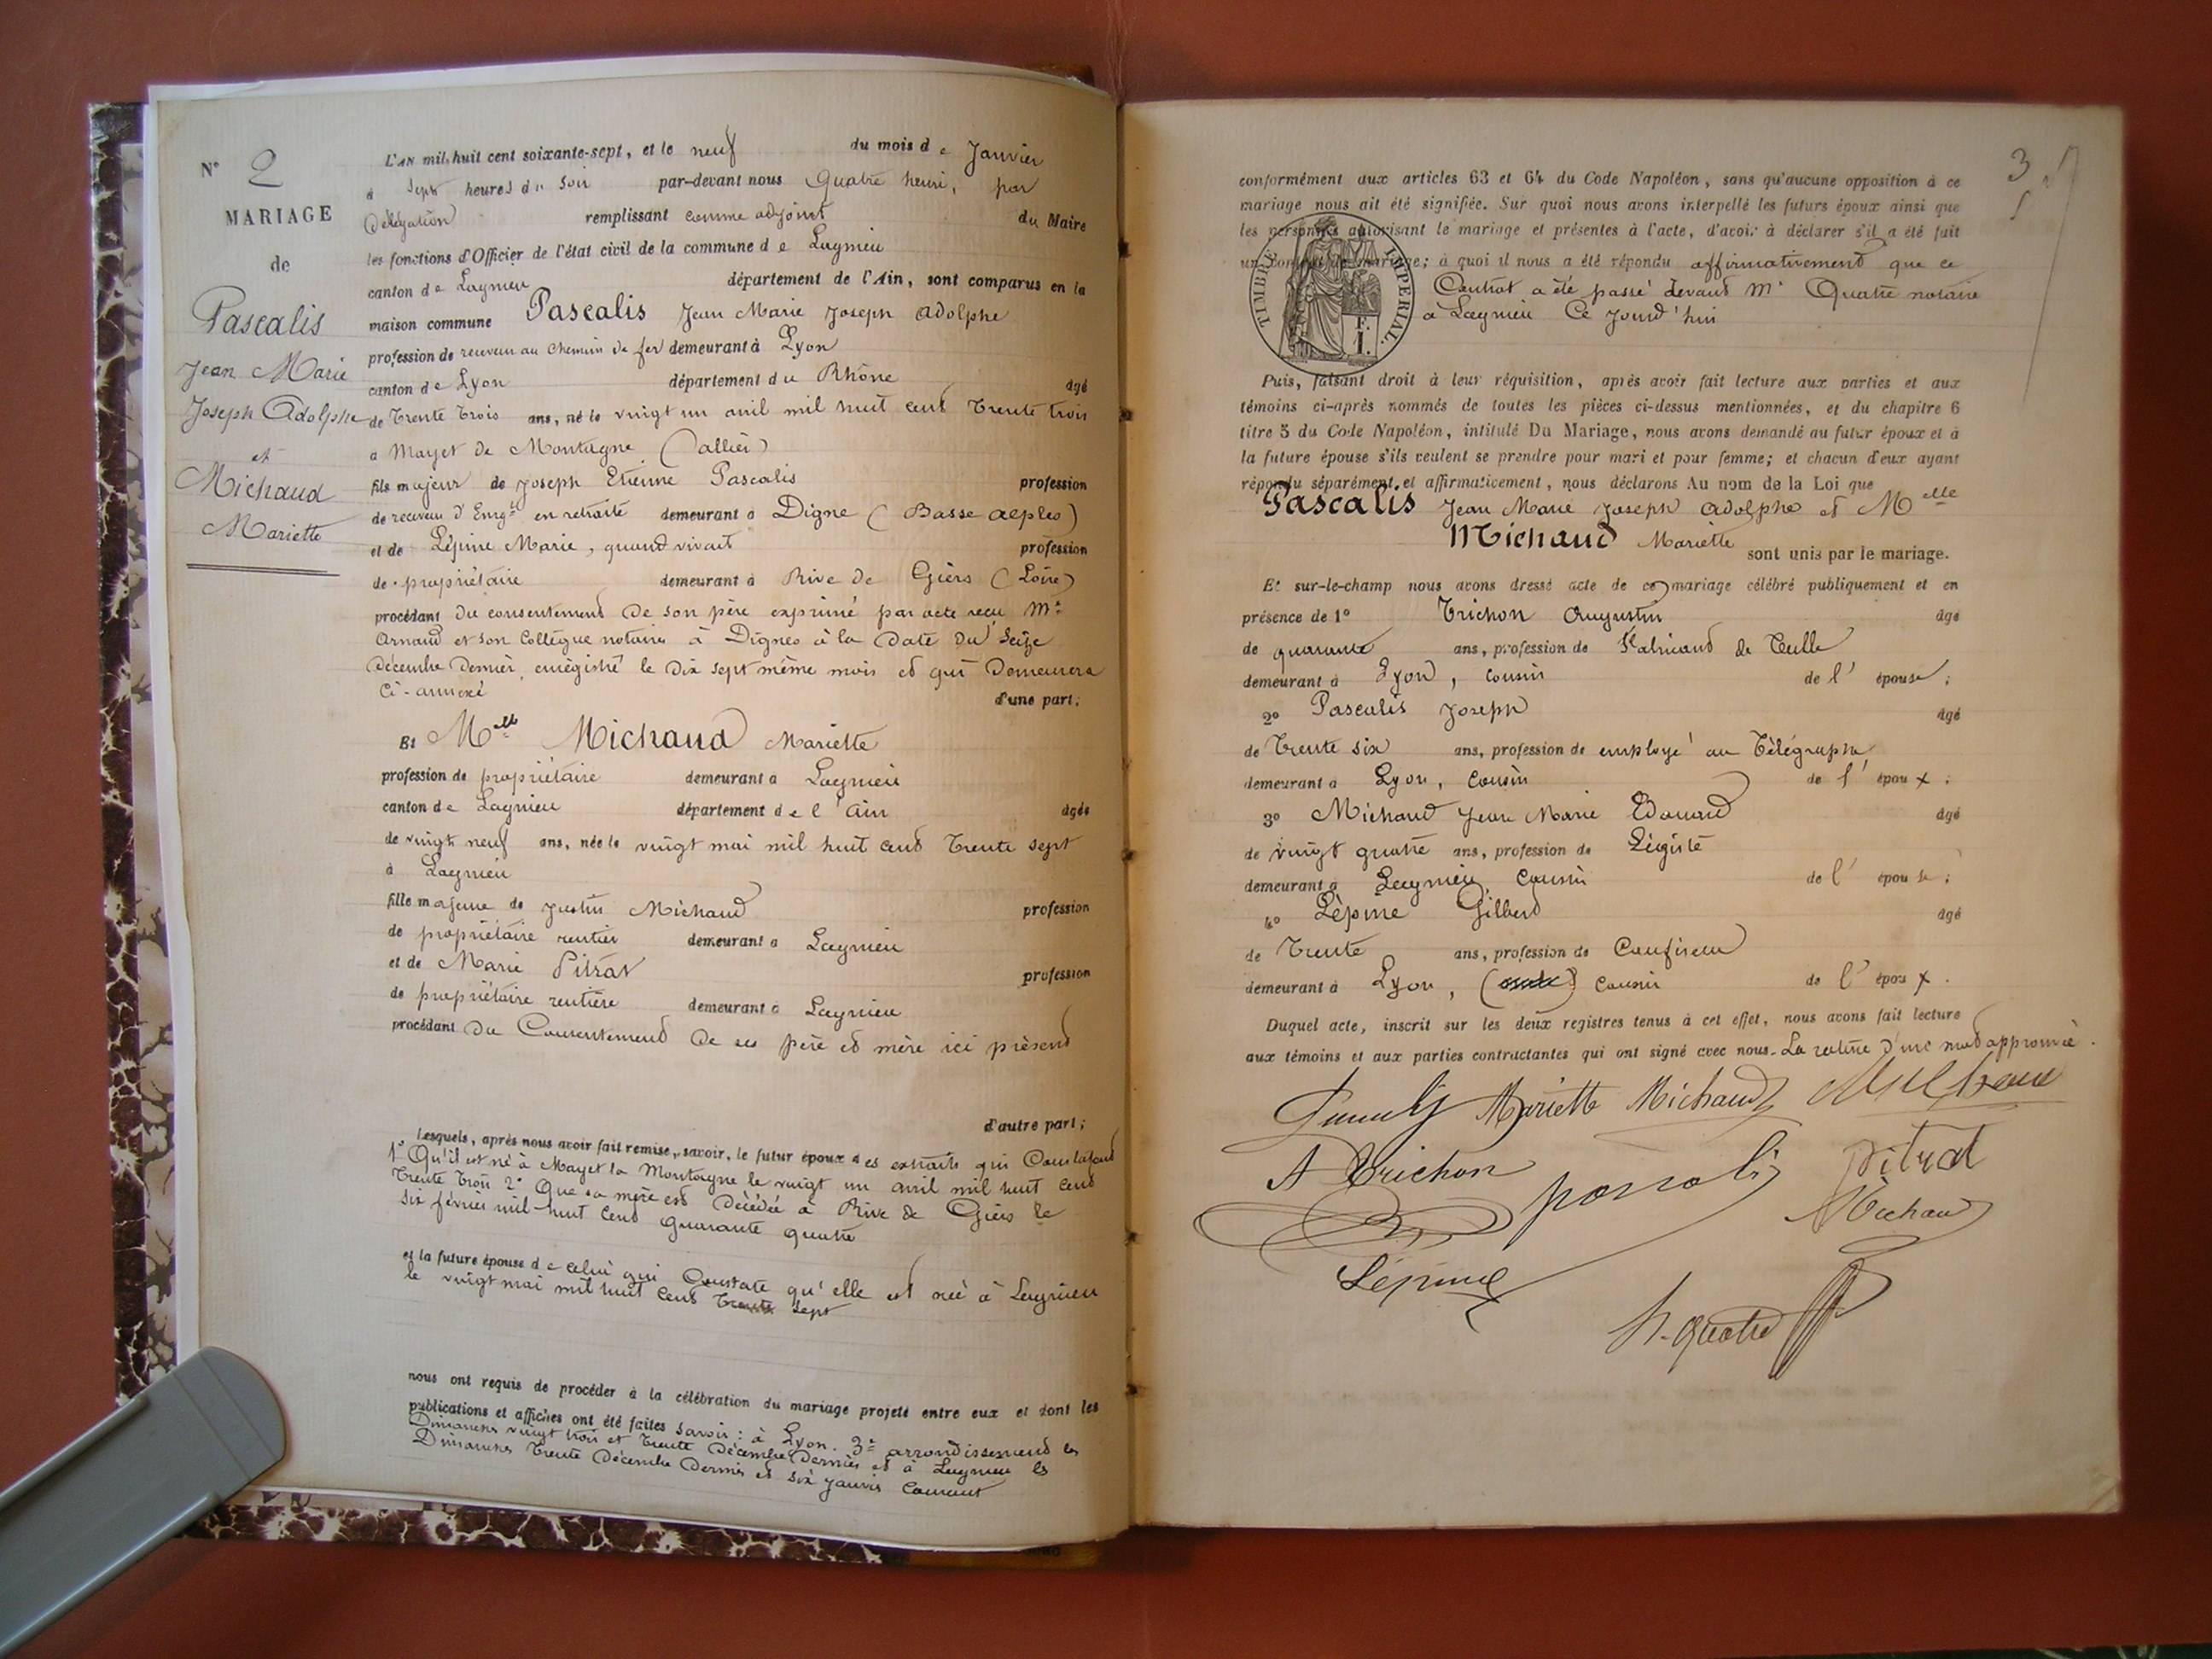 N° 2
MARIAGE
de
Pascalis
Jean Marie
Joseph Adolphe
et
Michaud
Mariette
L'AN mil huit cent soixante-sept, et le neuf du mois de Janvier
à sept heures du soir par-devant nous Quatre henri, par
délégation remplissant comme adjoint du Maire
les fonctions d'Officier de l'état civil de la commune de Lagnieu
canton de Lagnieu département de l'Ain, sont comparus en la
maison commune Pascalis Jean Marie Joseph Adolphe
profession de receveur au chemin de fer demeurant à Lyon
canton de Lyon département du Rhône âgé
de Trente Trois ans, né le vingt un avril mil huit cent Trente trois
à Mayet de Montagne (allier)
fils majeur de Joseph Etienne Pascalis profession
de receveur d'Enrgt en retraite demeurant à Digne (Basse alples)
et de Lépine Marie, quand vivait profession
de propriétaire demeurant à Rive de Giers (Loire)
procédant du consentement de son père exprimé par acte reçu Me
Arnaud et son Collègue notaires à Dignes à la date du Seize
Décembre dernier, enrégistré le dix sept même mois et qui demeurera
ci-annexé d'une part;
Et Melle Michaud Mariette
profession de propriétaire demeurant à Lagnieu
canton de Lagnieu département de l'Ain âgée
de vingt neuf ans, née le vingt mai mil huit cent Trente sept
à Lagnieu
fille majeure de Justin Michaud profession
de propriétaire rentier demeurant à Lagnieu
et de Marie Pitrat profession
de propriétaire rentière demeurant à Lagnieu
procédant du Consentement de ses père et mère ici présent
d'autre part;
Lesquels, après nous avoir fait remise, savoir, le futur époux des extraits qui Constatent
1° Qu'il est né à Mayet la Montagne le vingt un avril mil huit cent
Trente Trois 2° Que sa mère est décédée à Rive de Giers le
six février mil huit cent quarante quatre
et la future épouse de celui qui Constate qu'elle est née à Lagnieu
le vingt mai mil huit cent Trente sept
nous ont requis de procéder à la célébration du mariage projeté entre eux et dont les
publications et affiches ont été faites savoir: à Lyon. 3e arrondissement les
Dimanches vingt trois et Trente Décembre Dernier et à Lagnieu les
Dimanches Trente Décembre Dernier et six Janvier Courant
3
conformément aux articles 63 et 64 du Code Napoléon, sans qu'aucune opposition à ce
mariage nous ait été signifiée. Sur quoi nous avons interpellé les futurs époux ainsi que
les personnes autorisant le mariage et présentes à l'acte, d'avoir à déclarer s'il a été fait
un contrat de mariage; à quoi il nous a été répondu affirmativement que ce
Contrat a été passé devant Me Quatre notaire
à Lagnieu Ce jourd'hui
TIMBRE IMPERIAL.
F.
1.
Puis, faisant droit à leur réquisition, après avoir fait lecture aux parties et aux
témoins ci-après nommés de toutes les pièces ci-dessus mentionnées, et du chapitre 6
titre 5 du Code Napoléon, intitulé Du Mariage, nous avons demandé au futur époux et à
la future épouse s'ils veulent se prendre pour mari et pour femme; et chacun d'eux ayant
répondu séparément et affirmativement, nous déclarons Au nom de la Loi que
Pascalis Jean Marie Joseph Adolphe et Melle
Michaud Mariette sont unis par le mariage.
Et sur-le-champ nous avons dressé acte de ce mariage célébré publiquement et en
présence de 1° Trichon Augustin âgé
de quarante ans, profession de Fabricant de Tulle
demeurant à Lyon, cousin de l'épouse;
2° Pascalis Joseph âgé
de Trente six ans, profession de employé au Télégraphe
demeurant à Lyon, Cousin de l'époux;
3° Michaud Jean Marie Edouard âgé
de vingt quatre ans, profession de Légiste
demeurant à Lagnieu, Cousin de l'épouse;
4° Lépine Gilbert âgé
de Trente ans, profession de Confiseur
demeurant à Lyon, cousin de l'époux.
Duquel acte, inscrit sur les deux registres tenus à cet effet, nous avons fait lecture
aux témoins et aux parties contractantes qui ont signé avec nous. La rature d'un mot approuvée.
Mariette Michaud
A Trichon pascalis Pitrat
Michaud
Lépine
h. quatre